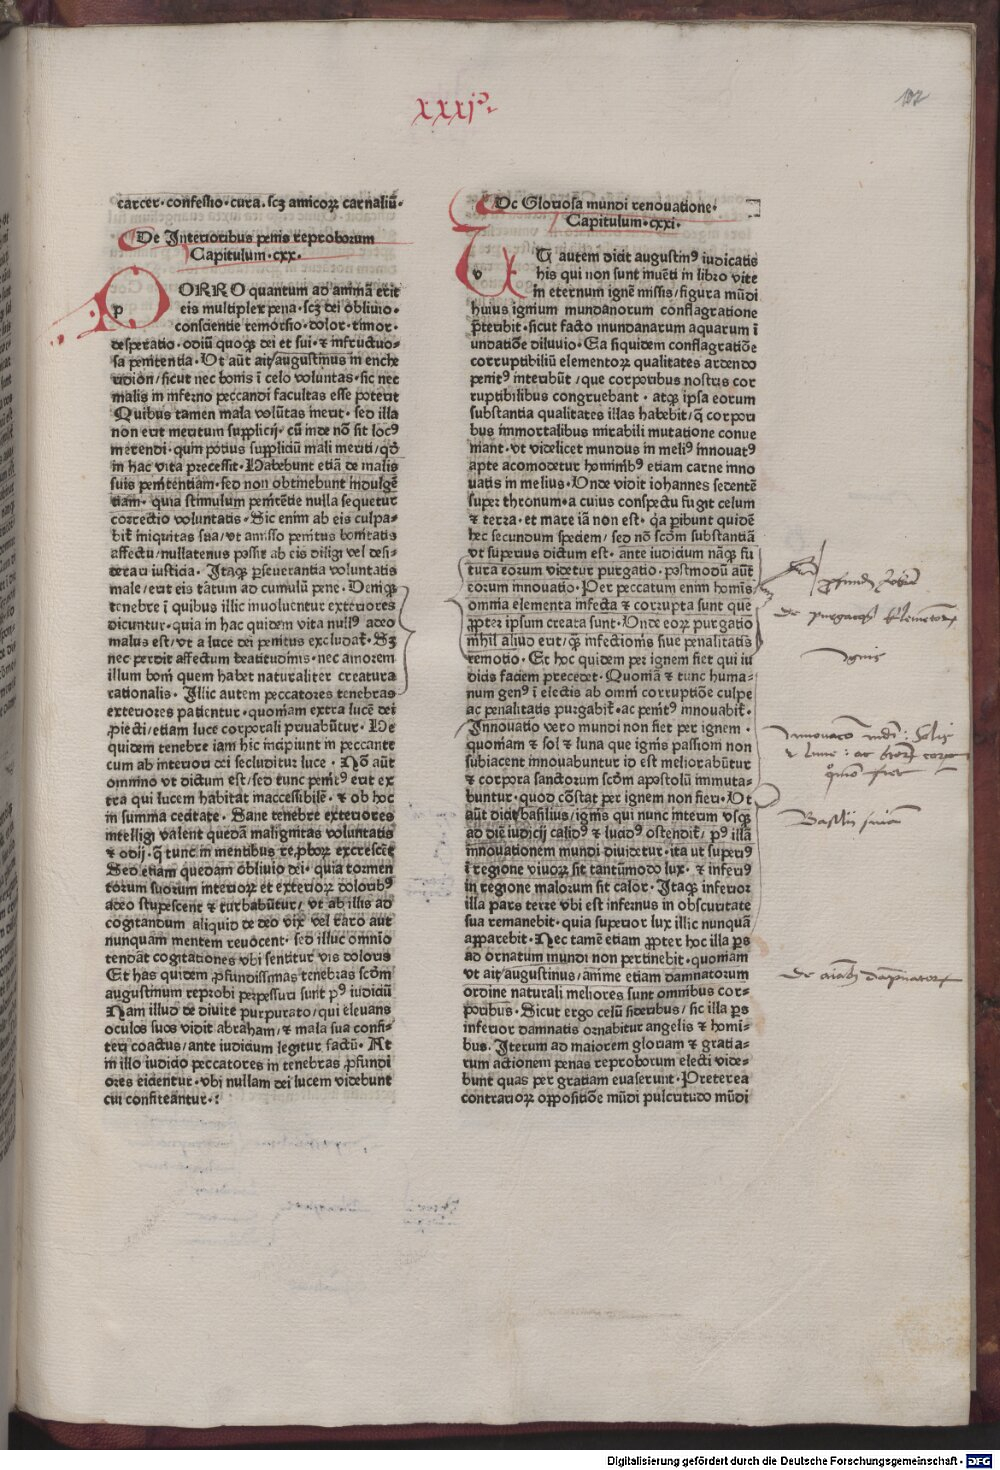 xxxjº.
102
carcer·confessio·cura·scꝫ amicoꝝ carnaliū·
De Interioribus penis reproborum
Capitulum·cxx·
p
ORRO quantum ad animā erit
eis multiplex pena·scꝫ dei obliuio·
conscientie remorsio·dolor·timor·
desperatio·odiū quoqꝫ dei et sui·⁊ infructuo⸗
sa penitentia·Ut aūt ait/augustinus in enche
ridion/sicut nec bonis ī celo voluntas·sic nec
malis in inferno peccandi facultas esse poterit
Quibus tamen mala volūtas inerit·sed illa
non erit meritum supplicij·cū inde nō sit locꝰ
merendi·quin potius suppliciū mali meriti/qd̄
in hac vita precessit·Habebunt etiā de malis
suis penitentiam·sed non obtinebunt indulgē
tiam·quia stimulum penitētie nulla sequetur
correctio voluntatis·Sic enim ab eis culpa⸗
bit᷑ iniquitas sua/ut amisso penitus bonitatis
affectu/nullatenus possit ab eis diligi vel desi⸗
derari iusticia. Itaqꝫ ꝑseuerantia voluntatis
male/erit eis tātum ad cumulū pene·Deniqꝫ
tenebre ī quibus illic inuoluentur exteriores
dicuntur·quia in hac quidem vita nullꝰ adeo
malus est/vt a luce dei penitus excludat᷑·Sꝫ
nec perdit affectum beatitudinis·nec amorem
illum boni quem habet naturaliter creatura
rationalis·Illic autem peccatores tenebras
exteriores patientur·quoniam extra lucē dei
ꝓiecti/etiam luce corporali priuabūtur·He
quidem tenebre iam hic incipiunt in peccante
cum ab interiori dei secluditur luce·Nō aūt
omnino vt dictum est/sed tunc penitꝰ erit ex
tra qui lucem habitat inaccessibilē·⁊ ob hoc
in summa cecitate·Sane tenebre exteriores
intelligi valent quedā malignitas voluntatis
⁊ odij·q̄ tunc in mentibus reꝓboꝝ excrescēt
Sed etiam quedam obliuio dei·quia tormen
torum suorum interioꝝ et exterioꝝ doloribꝰ
adeo stupescent ⁊ turbabūtur/vt ab illis ad
cogitandum aliquid de deo vix vel raro aut
nunquam mentem reuocent·sed illuc omnio
tendāt cogitationes vbi sentitur vis doloris
Et has quidem ꝓfundissimas tenebras scd̄m
augustinum reprobi perpessuri sunt pꝰ iudiciū
Nam illud de diuite purpurato/qui eleuans
oculos suos vidit abraham/⁊ mala sua confi⸗
teri coactus/ante iudicium legitur factū·At
in illo iudicio peccatores in tenebras ꝓfundi
ores eicientur·vbi nullam dei lucem videbunt
cui confiteāntur·:
De Gloriosa mundi renouatione·
Capitulum·cxxi·
v
U autem dicit augustinꝰ iudicatis
his qui non sunt inuēti in libro vite
in eternum ignē missis/figura mūdi
huius ignium mundanorum conflagratione
p̄teribit·sicut facto inundanarum aquarum ī
undatiōe diluuio·Ea siquidem conflagratiōe
corruptibiliū elementoꝝ qualitates ardendo
penitꝰ interibūt/que corporibus nostris cor
ruptibilibus congruebant·atqꝫ ipsa eorum
substantia qualitates illas habebit/q̄ corpori
bus immortalibus mirabili mutatione conue
niant·vt videlicet mundus in meliꝰ innouatꝰ
apte acomodetur hominibꝰ etiam carne inno
uatis in melius·Unde vidit iohannes sedentē
super thronum·a cuius conspectu fugit celum
⁊ terra·et mare iā non est·q̄a ꝑibunt quidē
hec secundum speciem/sed nō scd̄m substantiā
vt superius dictum est·ante iudicium nāqꝫ fu
tura eorum videtur purgatio·postmodū aūt
eorum innouatio·Per peccatum enim hominis
omnia elementa infecta ⁊ corrupta sunt que
ꝓpter ipsum creata sunt·Unde eoꝝ purgatio
nihil aliud erit/qꝫ infectionis siue penalitatis
remotio·Et hoc quidem per ignem fiet qui iu
dicis faciem precedet·Quoniā ⁊ tunc huma⸗
num genꝰ ī electis ab omni corruptiōe culpe
ac penalitatis purgabit᷑·ac penitꝰ innouabit᷑·
Innouatio vero mundi non fiet per ignem·
quoniam ⁊ sol ⁊ luna que ignis passioni non
subiacent innouabuntur id est meliorabūtur
⁊ corpora sanctorum scd̄m apostolū immuta⸗
buntur·quod cōstat per ignem non fieri·Ut
aūt dicit/basilius/ignis qui nunc interim vsqꝫ
ad diē iudicij calidꝰ ⁊ lucidꝰ ostendit᷑/pꝰ illā
innouationem mundi diuidetur·ita ut superiꝰ
ī regione viuoꝝ sit tantūmodo lux·⁊ inferiꝰ
in regione malorum sit calor·Itaqꝫ inferior
illa pars terre vbi est infernus in obscuritate
sua remanebit·quia superior lux illic nunquā
apparebit·Nec tamē etiam ꝓpter hoc illa ꝑs
ad ornatum mundi non pertinebit·quoniam
vt ait/augustinus/anime etiam damnatorum
ordine naturali meliores sunt omnibus cor⸗
poribus·Sicut ergo celū sideribus/sic illa ꝑs
inferior damnatis ornabitur angelis ⁊ homi⸗
bus. Iterum ad maiorem gloriam ⁊ gratia⸗
rum actionem penas reproborum electi vide⸗
bunt quas per gratiam euaserunt·Preterea
contrarioꝝ oppositiōe mūdi pulcritudo mūdi
de purgacōe elemētorꝝ
Ignis
Innouacō mūdi: Solis
⁊ lune: ac
quō fiet
Basilii
de aīabꝫ dāpnatorꝝ
Digitalisierung gefördert durch die Deutsche Forschungsgemeinschaft - DFG